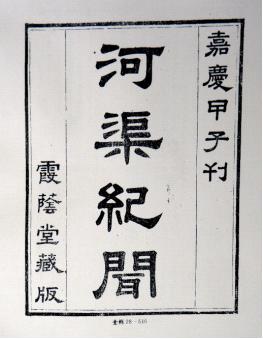 嘉慶甲子刊
河渠紀聞
霞蔭堂藏版